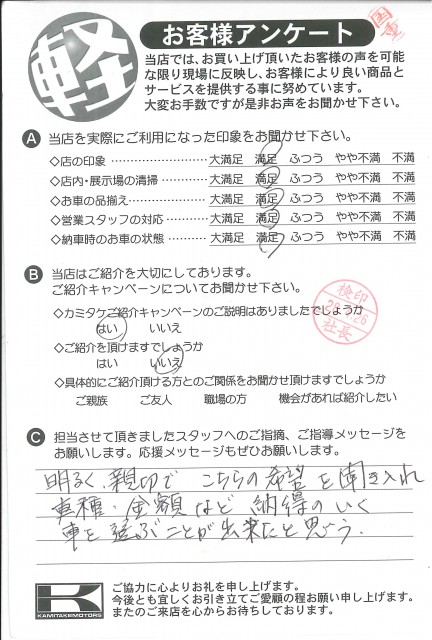 軽
お客様アンケート
当店では、お買い上げ頂いたお客様の声を可能
な限り現場に反映し、お客様により良い商品と
サービスを提供する事に努めています。
大変お手数ですが是非お声をお聞かせ下さい。
A 当店を実際にご利用になった印象をお聞かせ下さい。
◇店の印象 大満足 満足 ふつう やや不満 不満
◇店内・展示場の清掃 大満足 満足 ふつう やや不満 不満
◇お車の品揃え 大満足 満足 ふつう やや不満 不満
◇営業スタッフの対応 大満足 満足 ふつう やや不満 不満
◇納車時のお車の状態 大満足 満足 ふつう やや不満 不満
B 当店はご紹介を大切にしております。
ご紹介キャンペーンについてお聞かせ下さい。
◇カミタケご紹介キャンペーンのご説明はありましたでしょうか
はい いいえ
検印
社長
◇ご紹介を頂けますでしょうか
はい いいえ
◇具体的にご紹介頂ける方とのご関係をお聞かせ頂けますでしょうか
ご親族 ご友人 職場の方 機会があれば紹介したい
C 担当させて頂きましたスタッフへのご指摘、ご指導メッセージを
お願いします。応援メッセージもぜひお願いします。
明るく、親切で こちらの希望を聞き入れ
車種・金額など 納得のいく
車を選ぶことが出来たと思う。
K
KAMITAKEMOTORS
ご協力に心よりお礼を申し上げます。
今後とも宜しくお引き立てご愛顧の程お願い申し上げます。
またのご来店を心からお待ちしております。